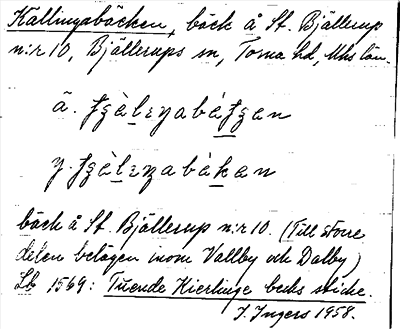 Källingabäcken, bäck å St. Bjällerup
n:r 10, Bjällerups sn, Torna hd, Mhs län.
ä.
y.
bäck å St. Bjällerup n:r 10. (Till större
delen belägen inom Vallby och Dalby)
Lb 1569: Tuende Kierlinge becks sticke.
I. Ingers 1958.